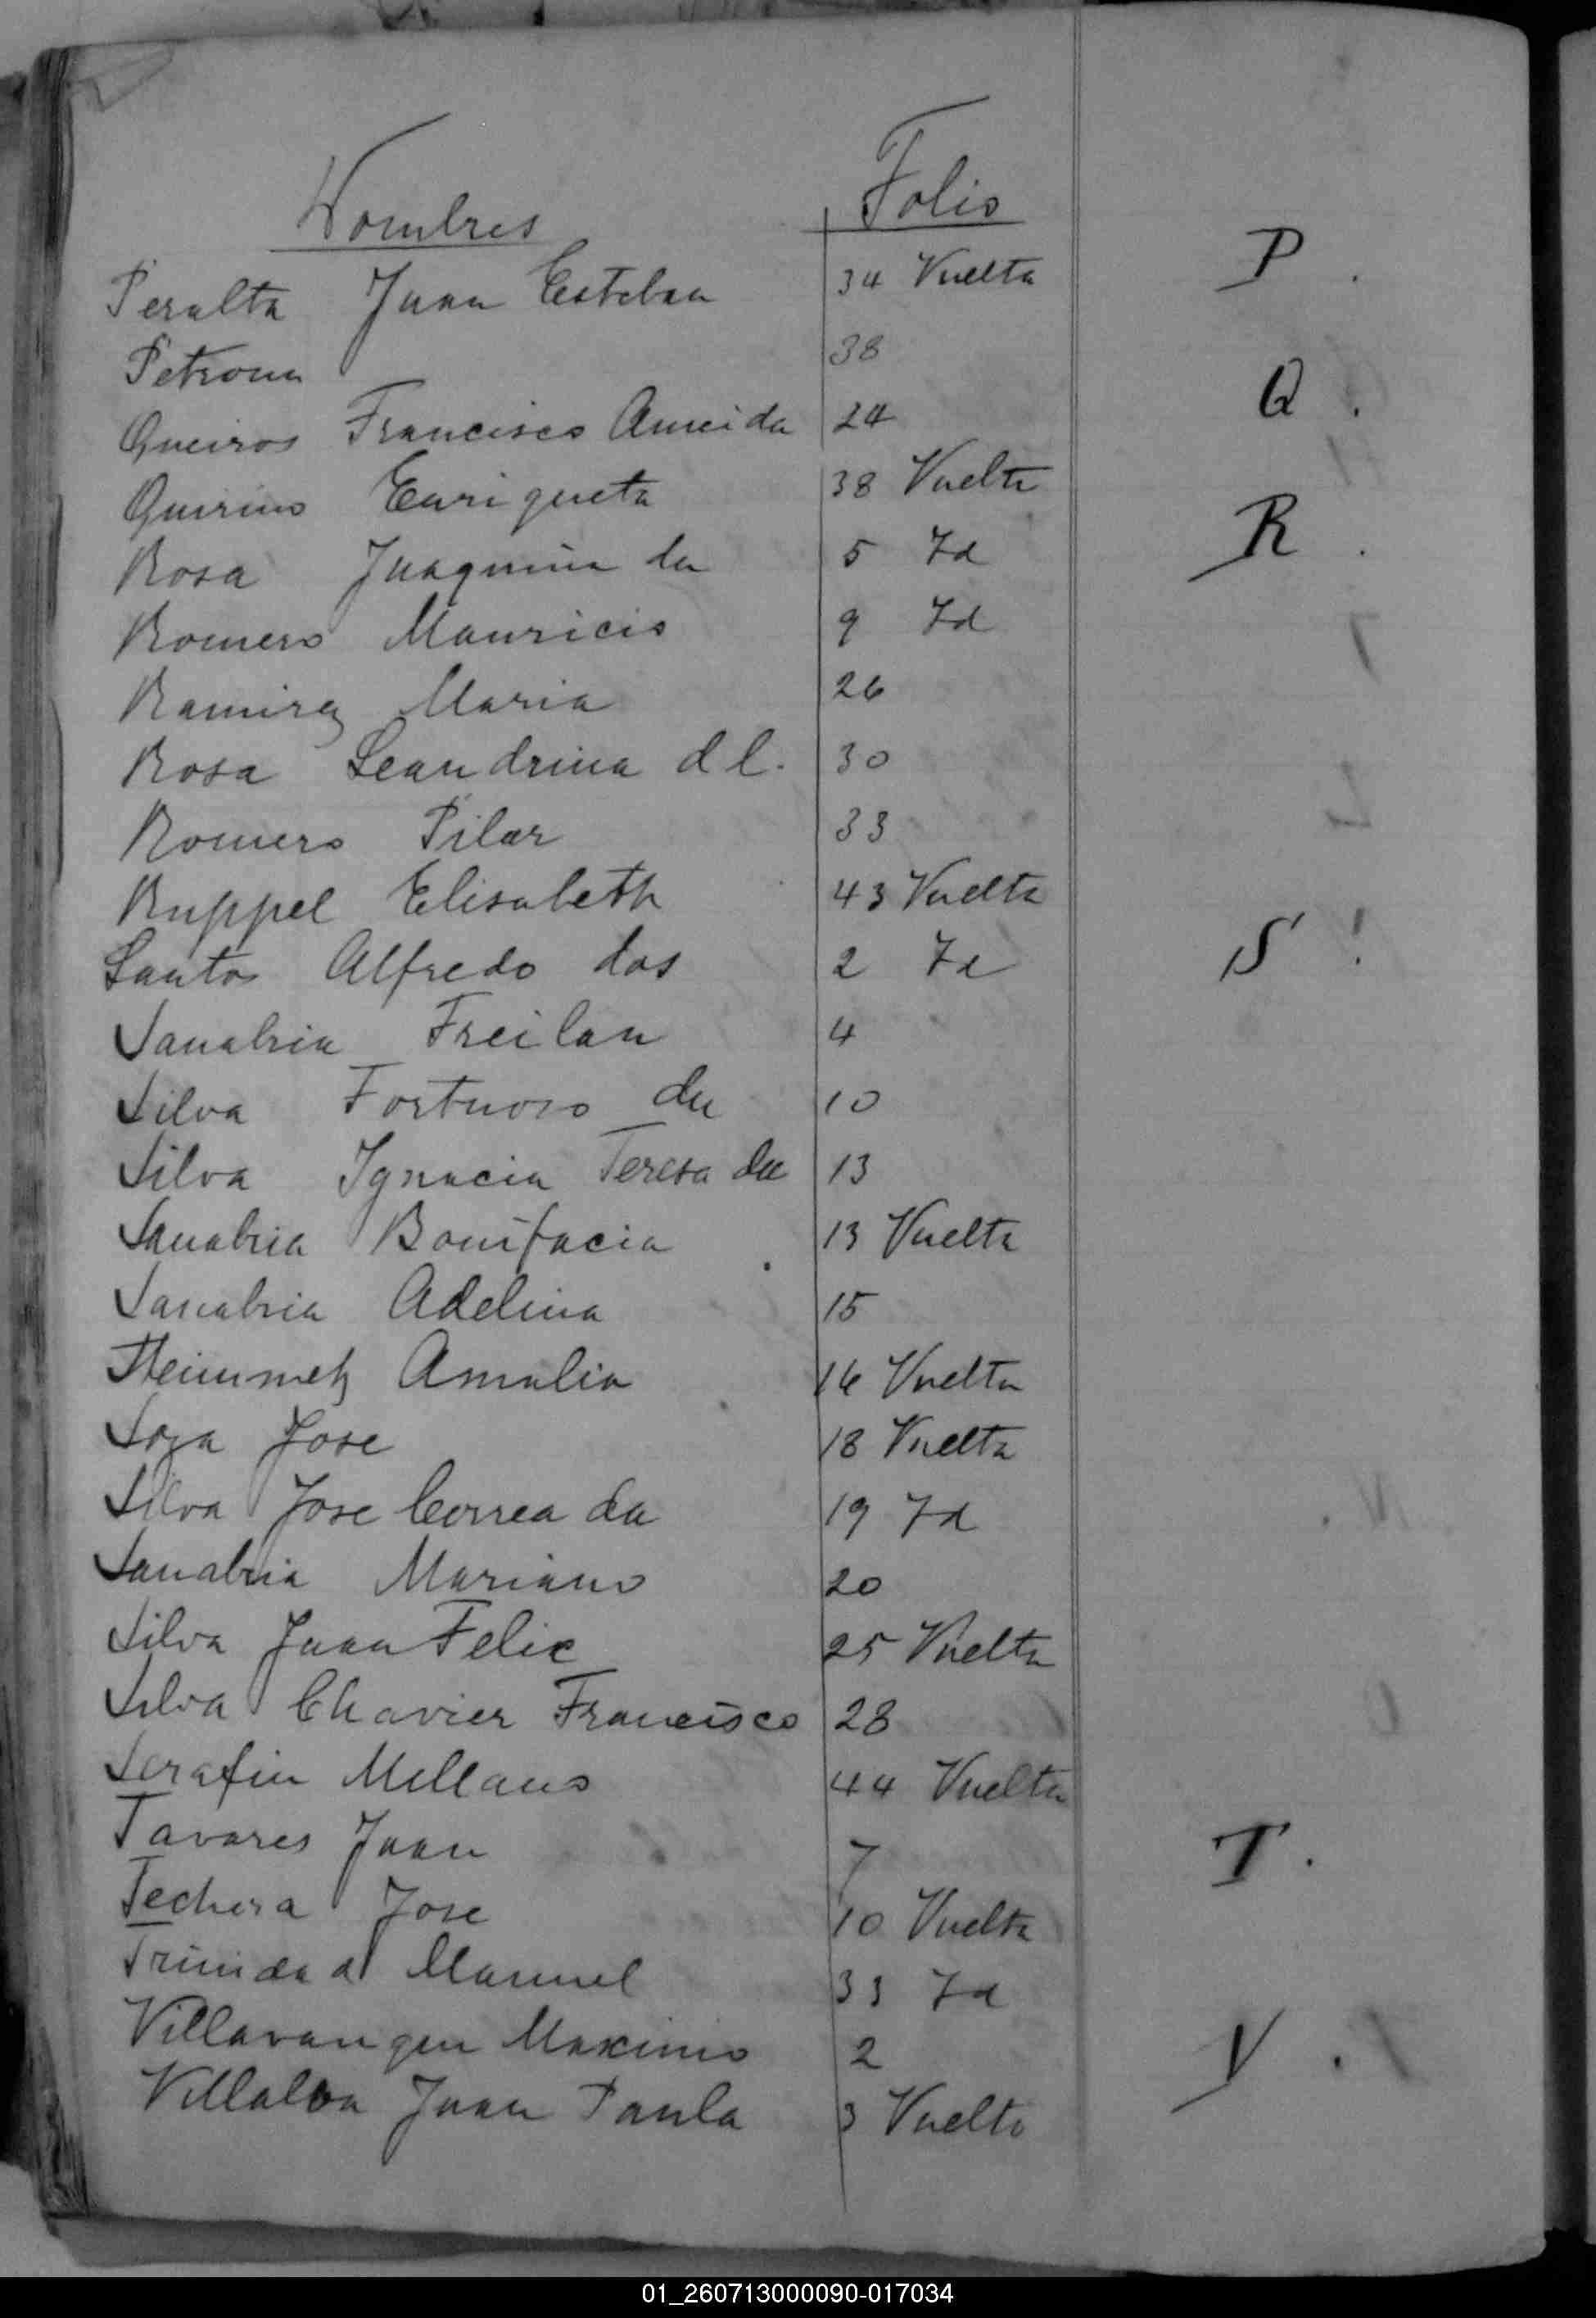 Nombres Folio
Peralta Juan Esteban 34 Vuelta P.
Petrona 38
Queiros Francisco Ameida 24 Q.
Quirino Enriqueta 38 Vuelta
Rosa Juaquina da 5 Id R.
Romero Mauricio 9 Id
Ramirez Maria 26
Rosa Leandrina d l. 30
Romero Pilar 33
Ruppel Elisabeth 43 Vuelta
Santos Alfredo dos 2 Id S.
Sanabria Freilan 4
Silva Fortuoso da 10
Silva Ignacia Teresa da 13
Sanabria Bonifacia 13 Vuelta
Sanabria Adelina 15
Steinmetz Amalia 16 Vuelta
Soza Jose 18 Vuelta
Silva Jose Correa da 19 Id
Sanabria Mariano 20
Silva Juan Felix 25 Vuelta
Silva Chavier Francisco 28
Serafin Mellano 44 Vuelta
Tavares Juan 7 T.
Techera Jose 10 Vuelta
Trinidad Manuel 33 Id
Maximio 2 V.
Villalba Juan Paula 3 Vuelta
01_260713000090-017034